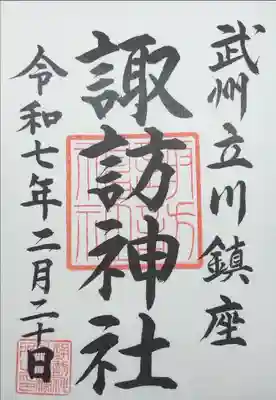 武州立川鎮座
諏訪神社
令和七年二月二十日